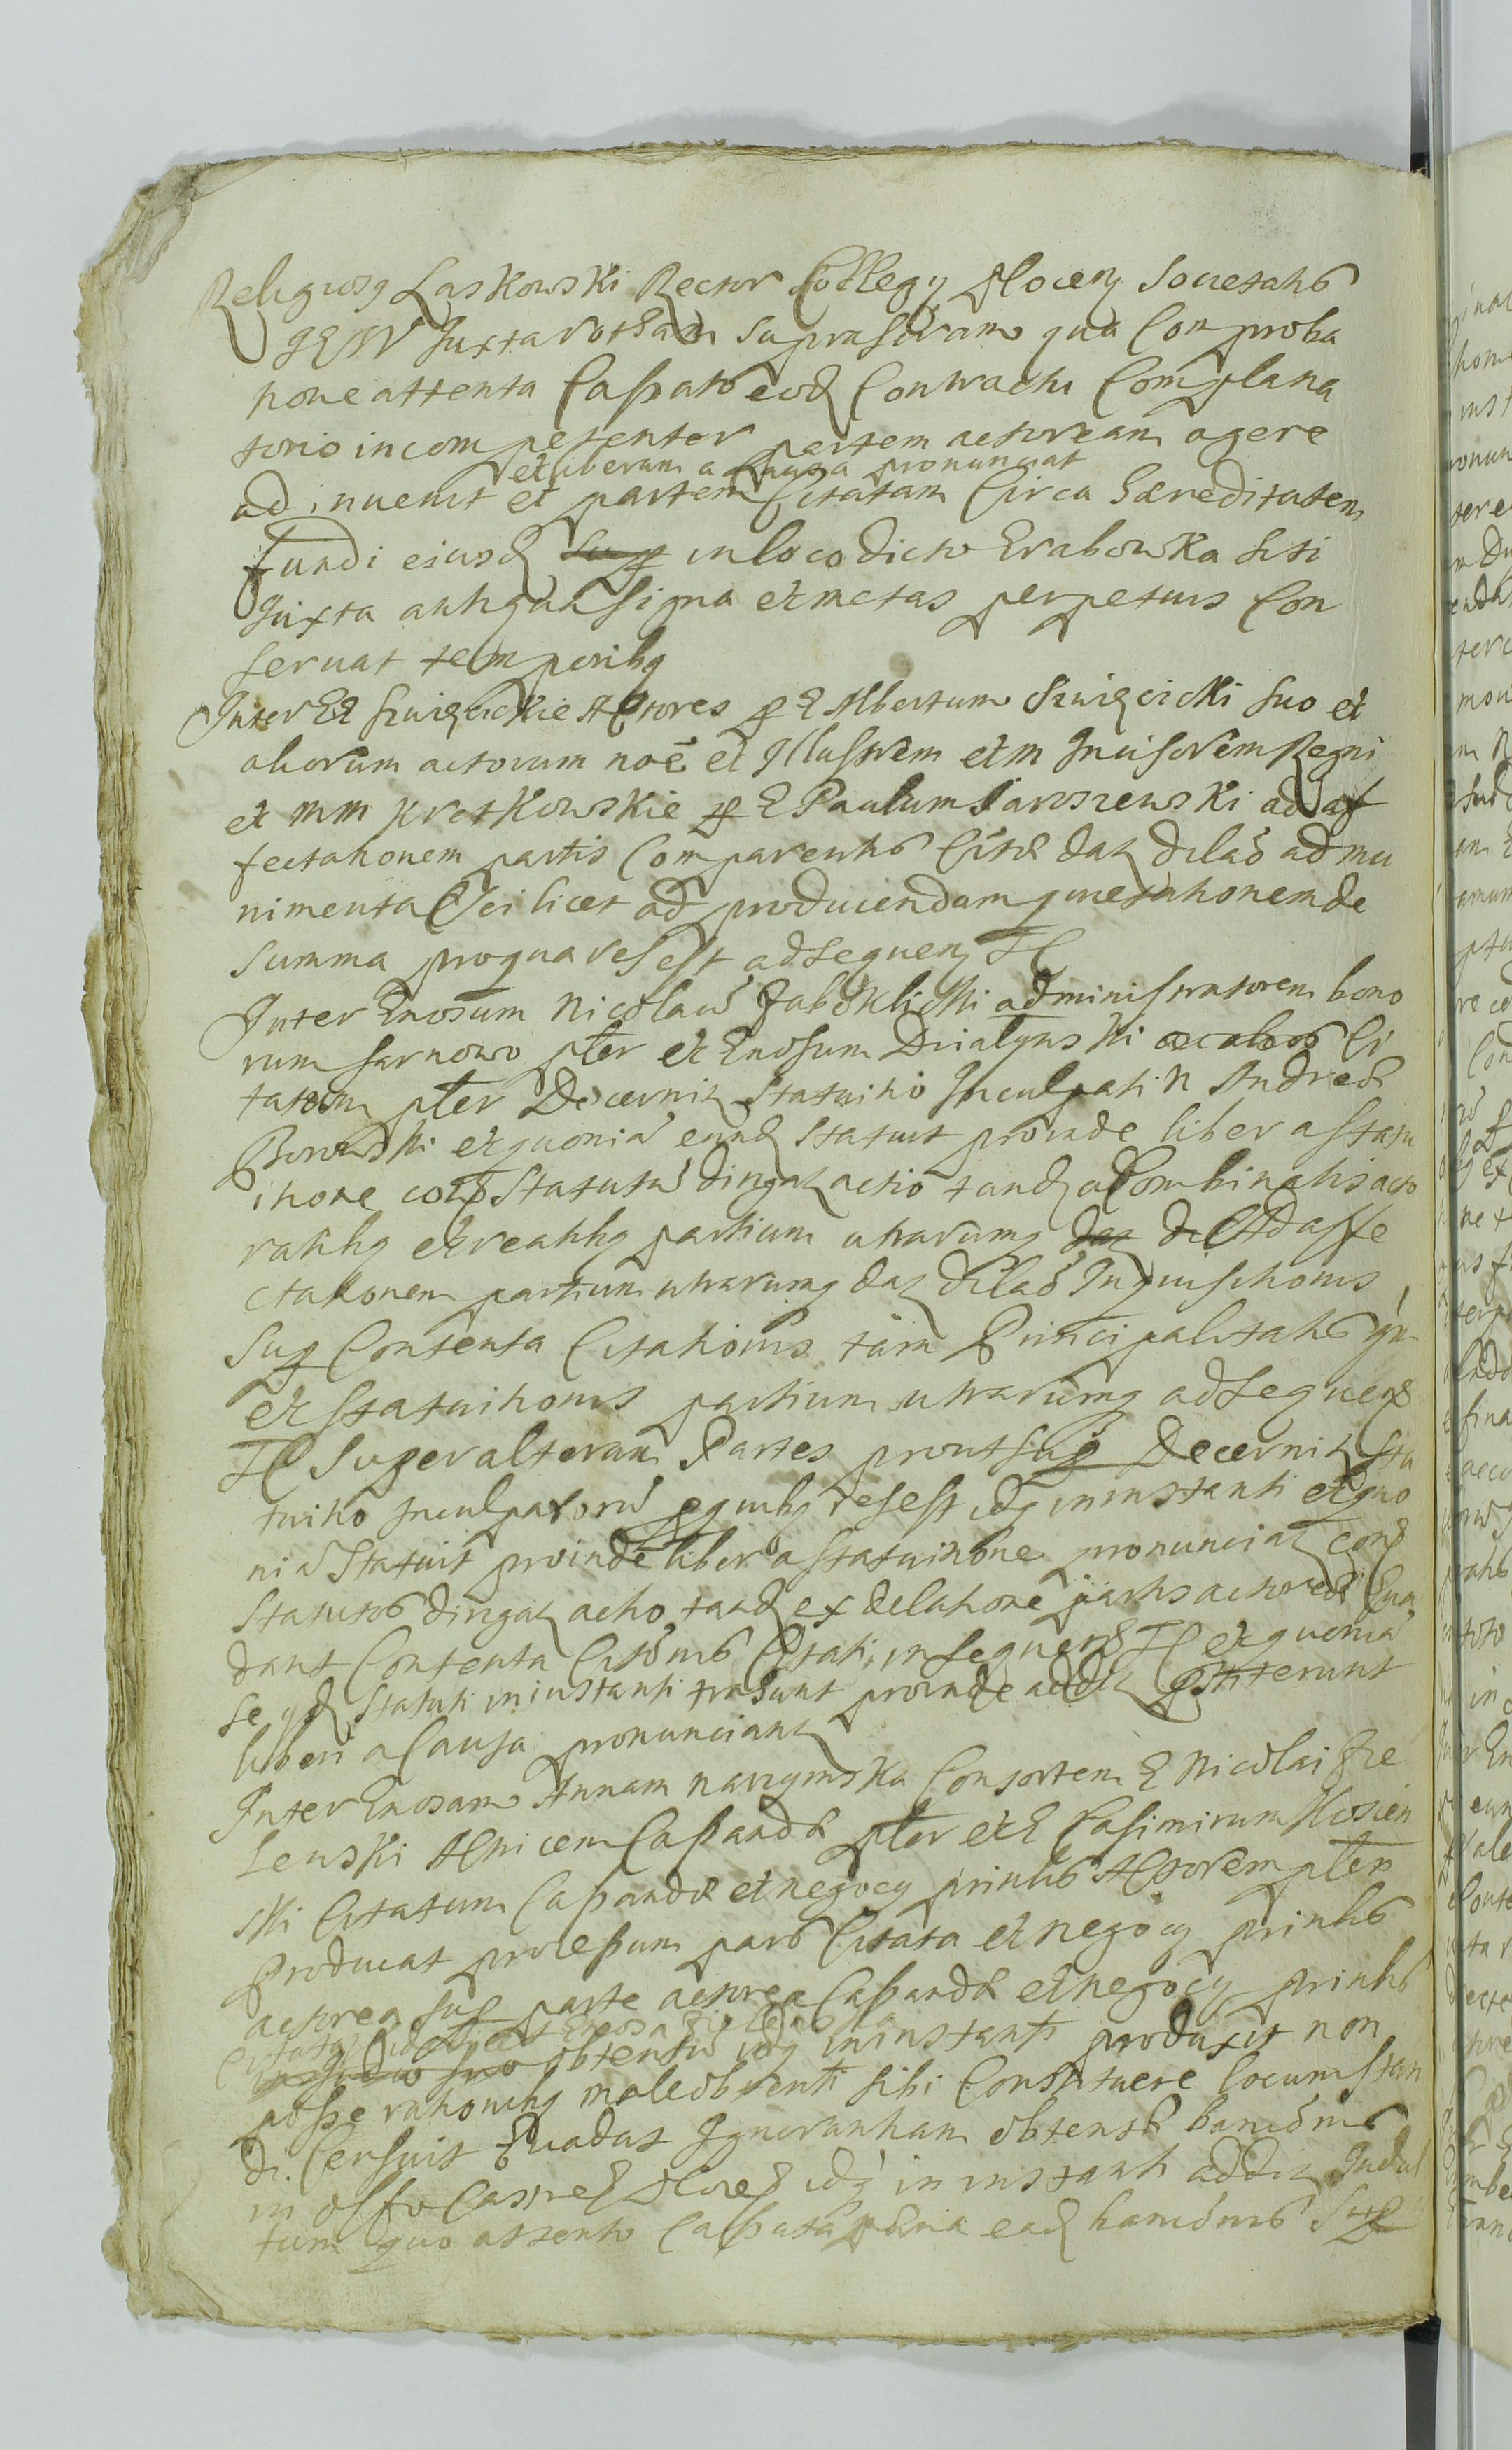 Religiosq Laskowski Rector Collegy Plocen Societatis
JESV Juxta rotham suprascram qua Comproba
tione attenta Cassato eod Contractu Complana
torio incompetenter partem actoream agere
et liberam a Causa pronunciat
ad invenit et partem Citatam Circa Haereditatem
fundi eiusd sup in loco dicto Grabowka siti
Juxta antiqua signa et metas perpetuis Con
servat temporibq
Inter GG Swięcickie Actores p G Albertum Swięcicki suo et
aliorum actorum noe et Illustrem et m Incisorem Regni
et mm Kretkowskie p G Paulum Jaroszewski ad af
fectationem partis Comparentis Citae dat dilao ad mu
nimenta scilicet ad producendam quietationem de
summa pro qua res est ad sequen TC
Inter Gnosum Nicolau Jabłk administratorem bono
rum sarnowo pter et Gnosum Działynski Ci
tatum pter Decernit statuitio Inculpati N Andreae
Borowski et quonia eund statuit proinde liber a statu
itione eode statutu dirigat actio tand a Combinatis acto
ratibq et reatibq partium utrarumq dat di Ad affe
ctationem partium utrarumq dat dilao Inquisitionis
sup Contenta Citationis tam Principalitatis qn
et statuitionis partium utrarumq ad sequens
TC super alteram Partes prout sup Decernit sta
tuitio inculpatoru p quibq res est idq in instanti et quo
nia statuit proinde liber a statuitione pronunciat eode
statutos dirigat actio tand ex delatione partis actoreae Eva
dant Contenta Citonis Citati in sequens TC et quonia
se qd statuti in instanti proinde addit
liberi a Causa pronunciant
Inter Gnosam Annam narzymska Consortem G Nicolai Zie
lenski Actricem Cassandae pter et G Casimirum
ski Citatum Cassandae et negocy prinlis Actorem pter
Producat processum pars Citata et negocy prinlis
actorea sup parte actorea Cassandae et negocy prinlis
Citata videlicet Gnosa Zielenska
in Judio suo obtentu idq in instanti produxit non
posse rationibq male obtenti sibi Constituere locum stan
di. Censuit Evadat Ignorantiam obtentae banionis
in offo Castren Plocen idq in instanti addit Indul
tum quo attento Cassata poena ead banionis sup